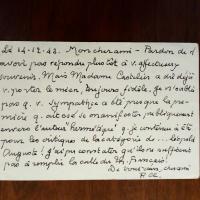 Le 14.12.43. Mon cher ami - Pardon de n'
avoir pas répondu plus tôt à v. affectueux
souvenir. Mais Madame Castelier a dit déjà
v. porter le mien, toujours fidèle. Je n'oublie
pas q. v. sympathie a été presque la pre-
mière q. ait osé se manifester publiquement
envers l'auteur hermétique q. je continue à être
pour les critiques de la catégorie de... Léopold
Auguste! J'ai pu constater qu'ils ne suffisent
pas à remplir la salle du Th. Français!
De tout cœur, cher ami
P. Cl.